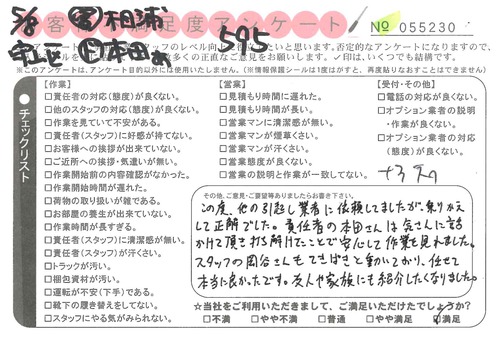 5/8 客 相浦
客様満足度アンケート
№ 055230
守山区 本田
595
スタッフのレベル向
いと思います。否定的なアンケートになりますので、
数多くの正直なご意見をお願いします。✓印は、いくつでも結構です。
※このアンケートは、アンケート目的以外には使用いたしません。(※情報保護シールは1度はがすと、再度貼りなおすことはできません)
チェックリスト
【作業】
□責任者の対応(態度)が良くない。
□他のスタッフの対応(態度)が良くない。
□作業を見ていて不安がある。
□責任者(スタッフ)に好感が持てない。
□お客様への挨拶が出来ていない。
□ご近所への挨拶・気遣いが無い。
□作業開始前の内容確認がなかった。
□作業開始時間が遅れた。
□荷物の取り扱いが雑である。
□お部屋の養生が出来ていない。
□作業時間が長すぎる。
□責任者(スタッフ)に清潔感が無い。
□責任者(スタッフ)が汗くさい。
□トラックが汚い。
□梱包資材が汚い。
□運転が不安(下手)である。
□靴下の履き替えをしてない。
□スタッフにやる気がみられない。
【営業】
□見積もり時間に遅れた。
□見積もり時間が長い。
□営業マンに清潔感が無い。
□営業マンが煙草くさい。
□営業マンが汗くさい。
□営業態度が良くない。
□営業の説明と作業が一致してない。
【受付・その他】
□電話の対応が良くない。
□オプション業者の説明
・作業が良くない。
□オプション業者の対応
(態度)が良くない。
その他、ご意見・ご要望等ありましたらお書き下さい。
この度、他の引越し業者に依頼してましたが、乗りかえ
して正解でした。責任者の本田さんは気さんに話
かけて頂き打ち解けたことで安心して作業を見れました。
スタッフの岡谷さんもてきぱきと動いており、任せて
本当に良かったです。友人や家族にも紹介したくなりました。
☆当社をご利用いただきまして、ご満足いただけたでしょうか?
□不満 □やや不満 □普通 □やや満足 □満足